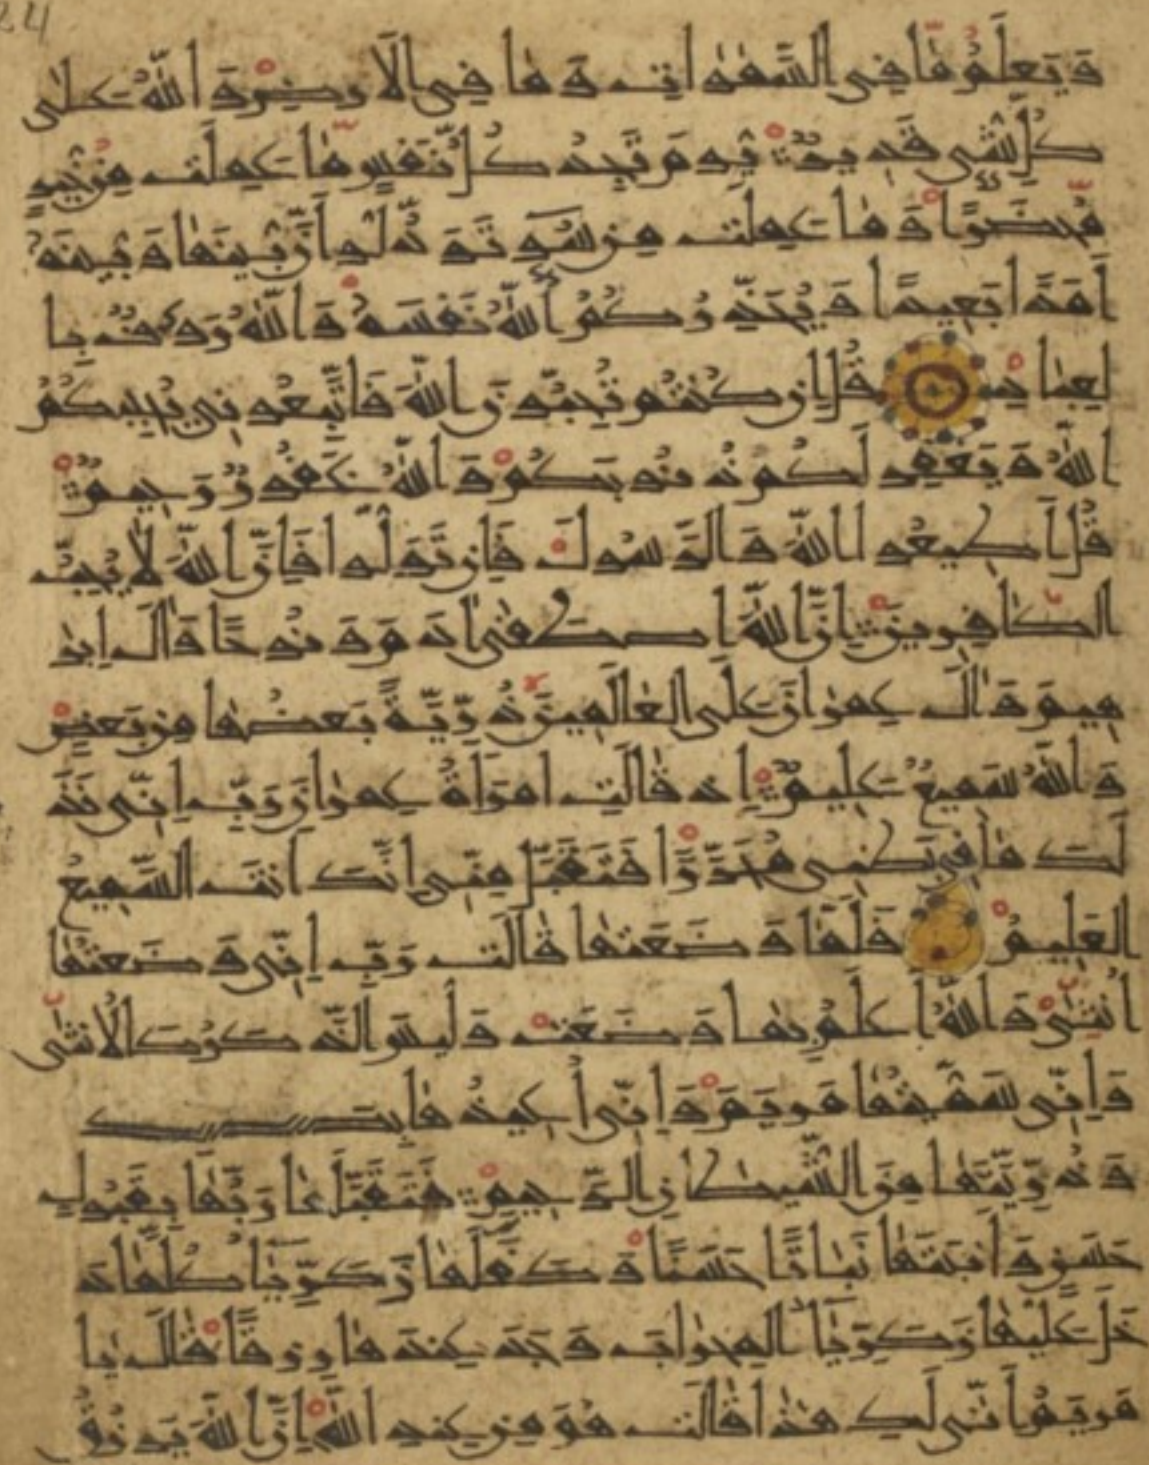 24
وَيَعلَمُ مَا فِى السَّمٰوَاتِ وَمَا فِى الاَرضِ وَاللّٰهُ عَلٰى
كُلِّ شَىءٍ قَدِيرٌ يَومَ تَجِدُ كُلُّ نَفسٍ مَا عَمِلَت مِن خَيرٍ
مُّحضَرًا وَمَا عَمِلَت مِن سُوءٍ تَوَدُّ لَو اَنَّ بَينَهَا وَبَينَهُ
اَمَدًا بَعِيدًا وَيُحَذِّرُكُمُ اللّٰهُ نَفسَهُ وَاللّٰهُ رَءُوفٌ بِا
لعِبَادِ قُل اِن كُنتُم تُحِبُّونَ اللّٰهَ فَاتَّبِعُونِى يُحبِبكُمُ
اللّٰهُ وَيَغفِر لَكُم ذُنُوبَكُم وَاللّٰهُ غَفُورٌ رَحِيمٌ
قُل اَطِيعُوا اللّٰهَ وَالرَّسُولَ فَاِن تَوَلَّوا فَاِنَّ اللّٰهَ لَا يُحِبُّ
الكَافِرِينَ اِنَّ اللّٰهَ اصطَفٰى اٰدَمَ وَنُوحًا وَاٰلَ اِبرٰ
هِيمَ وَاٰلَ عِمرَانَ عَلَى العَالَمِينَ ذُرِّيَّةً بَعضُهَا مِن بَعضٍ
وَاللّٰهُ سَمِيعٌ عَلِيمٌ اِذ قَالَتِ امرَاَةُ عِمرَانَ رَبِّ اِنِّى نَذَرتُ
لَكَ مَا فِى بَطنِى مُحَرَّرًا فَتَقَبَّل مِنِّى اِنَّكَ اَنتَ السَّمِيعُ
العَلِيمُ فَلَمَّا وَضَعَتهَا قَالَت رَبِّ اِنِّى وَضَعتُهَا
اُنثٰى وَاللّٰهُ اَعلَمُ بِمَا وَضَعَت وَلَيسَ الذَّكَرُ كَالاُنثٰى
وَاِنِّى سَمَّيتُهَا مَريَمَ وَاِنِّى اُعِيذُهَا بِكَ
وَذُرِّيَّتَهَا مِنَ الشَّيطَانِ الرَّجِيمِ فَتَقَبَّلَهَا رَبُّهَا بِقَبُولٍ
حَسَنٍ وَاَنبَتَهَا نَبَاتًا حَسَنًا وَكَفَّلَهَا زَكَرِيَّا كُلَّمَا دَ
خَلَ عَلَيهَا زَكَرِيَّا المِحرَابَ وَجَدَ عِندَهَا رِزقًا قَالَ يَا
مَريَمُ اَنّٰى لَكِ هٰذَا قَالَت هُوَ مِن عِندِ اللّٰهِ اِنَّ اللّٰهَ يَرزُقُ